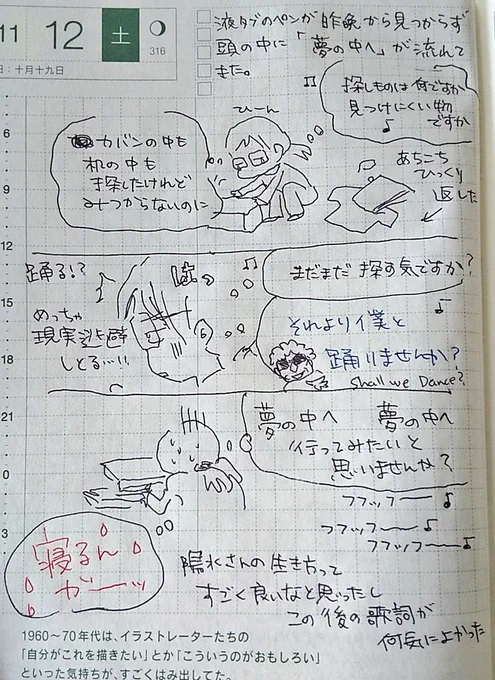 11
12
土
316
日：十月十九日
液タブのペンが昨晩から見つからず
頭の中に「夢の中へ」が流れて
きた。
探しものは何ですか
見つけにくい物
ですか
ひーん
カバンの中も
机の中も
探したけれど
みつからないのに
あちこち
ひっくり
返した
6
9
12
15
18
21
0
3
踊る!?
めっちゃ
現実逃避
しとる…!!
まだまだ探す気ですか？
それより僕と
踊りませんか？
Shall we Dance?
夢の中へ 夢の中へ
行ってみたいと
思いませんか？
フフッフー
フフッフ〜〜
フフッフ〜〜
寝るん
がーーッ
陽水さんの生き方って
すごく良いなと思ったし
この後の歌詞が
何気によかった
1960〜70年代は、イラストレーターたちの
「自分がこれを描きたい」とか「こういうのがおもしろい」
といった気持ちが、すごくはみ出してた。